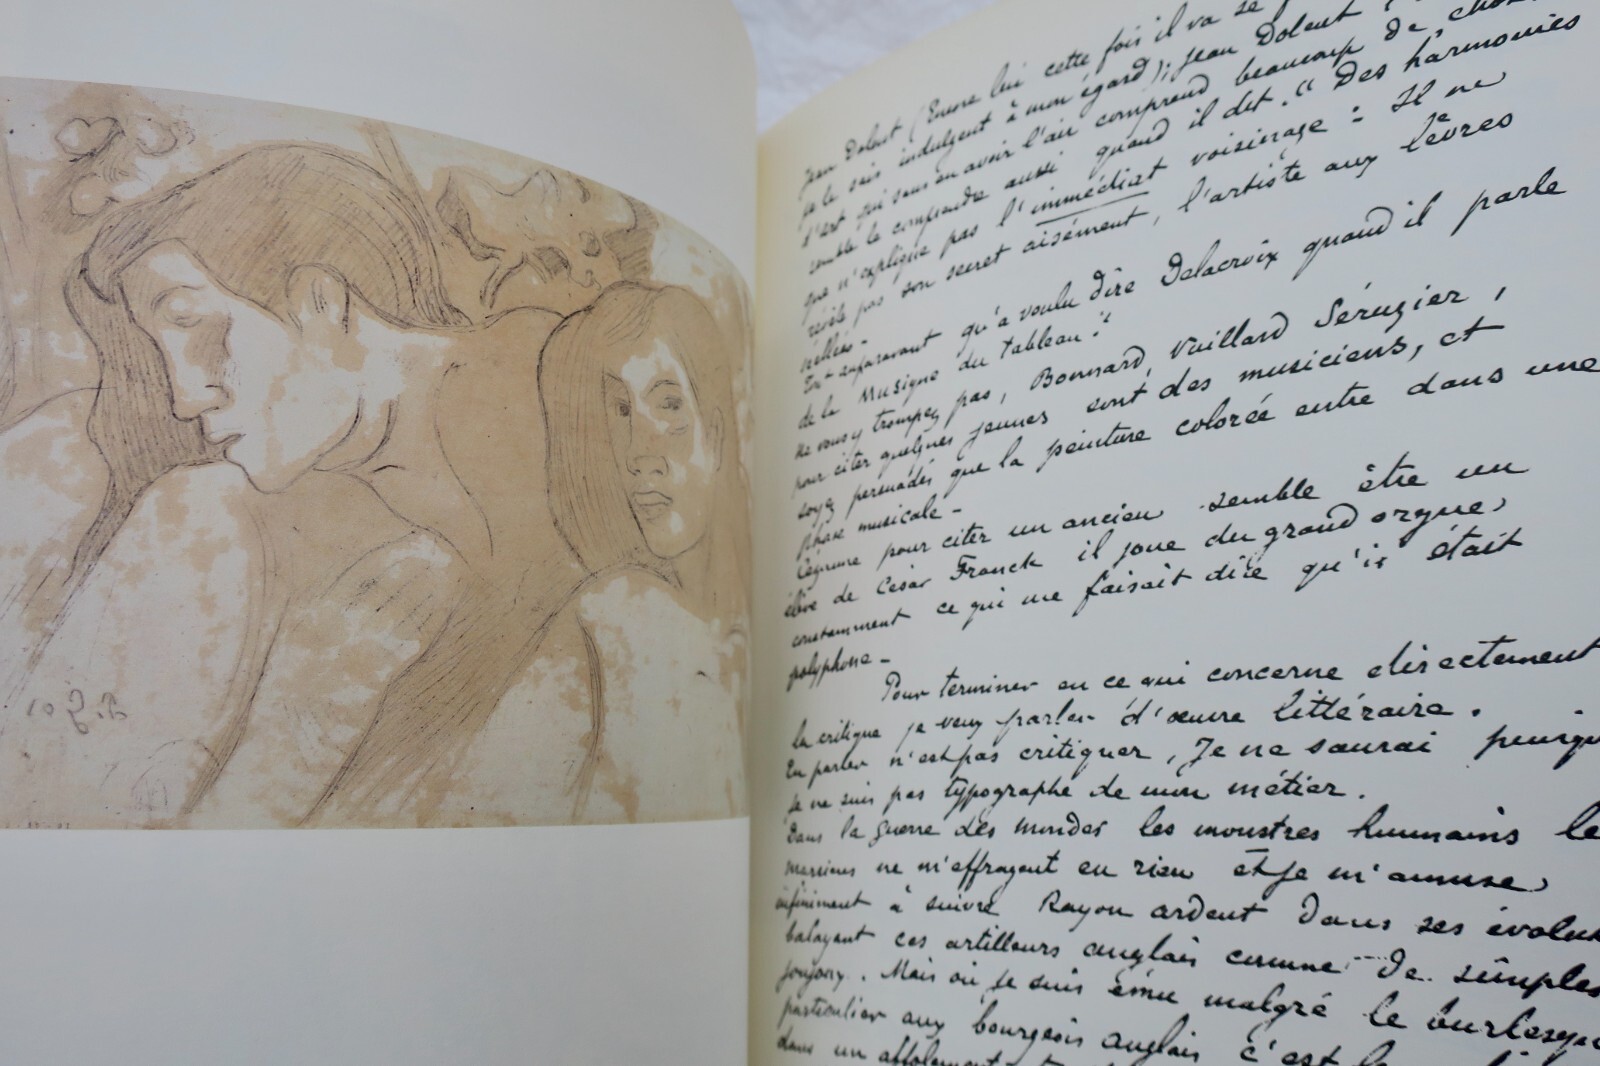 Jean Dolent (Encore lui cette fois il va se
je le sais indulgent à mon égard); Jean Dolent
d'art qui sans en avoir l'air comprend beaucoup de choses
semble le comprendre aussi quand il dit. "Des harmonies
que n'explique pas l'immédiat voisinage : Il ne
révèle pas son secret aisément, l'artiste aux lèvres
scellées -
Tout auparavant qu'a voulu dire Delacroix quand il parle
de la Musique du tableau."
Ne vous y trompez pas, Bonnard, Vuillard Sérusier,
pour citer quelques jeunes sont des musiciens, et
soyez persuadés que la peinture colorée entre dans une
phase musicale -
Cézanne pour citer un ancien semble être un
élève de César Franck il joue du grand orgue,
constamment ce qui me faisait dire qu'il était
polyphone -
Pour terminer en ce qui concerne directement
la critique je veux parler d'œuvre littéraire.
En parler n'est pas critiquer, Je ne saurai puisqu
je ne suis pas typographe de mon métier.
Dans la guerre des mondes les monstres humains le
marsiens ne m'effrayent en rien et je m'amuse,
infiniment à suivre Rayon ardent dans ses évolu
balayant ces artilleurs anglais comme de simples
joujoux. Mais où je suis ému malgré le burlesque
particulier aux bourgeois anglais c'est
dans un affolement
P. Go.